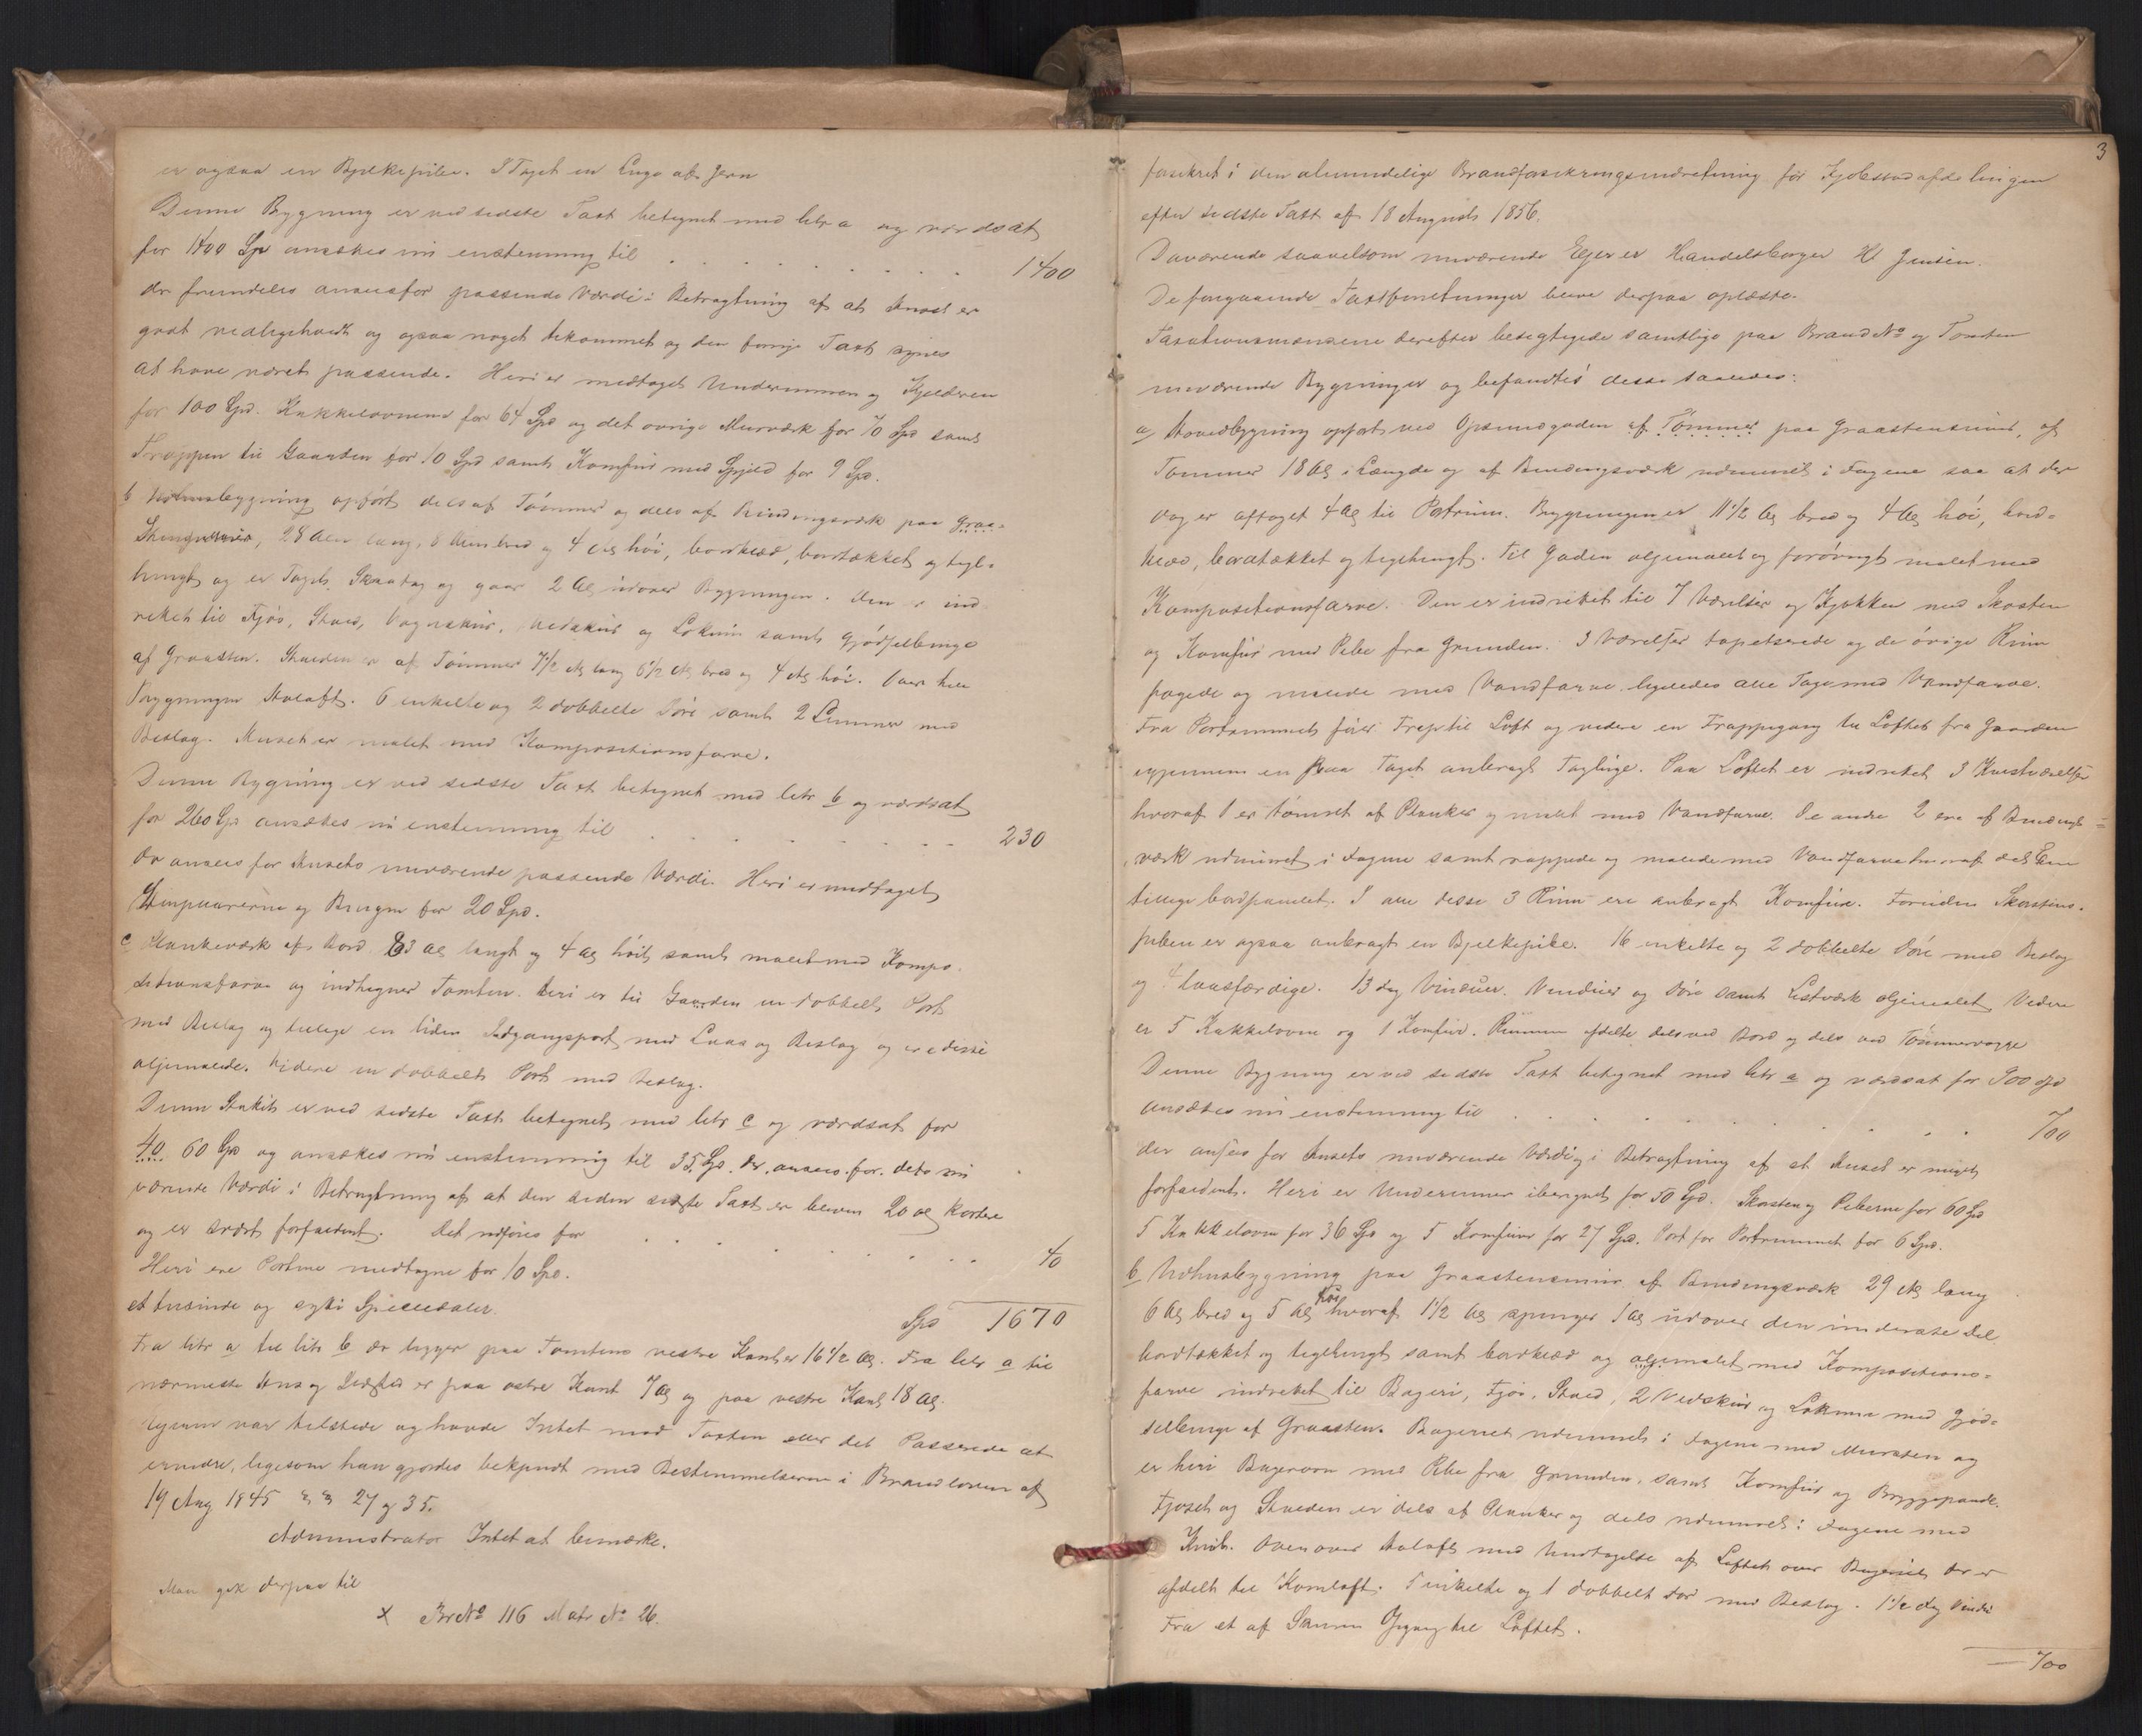 er ogsaa en Bjelkepibe. I Taget en Luge af Jern
Denne Bygning er ved sidste Taxt betegnet med litr a og værdsat
for 1400 Spd ansættes nu enstemmig til . . . . . . . . 1400
der fremdeles ansees for passende Værdi i Betragtning af at Huset er
godt vedligeholdt og ogsaa noget bekommet og den forrige Taxt synes
at have været passende. Heri er medtaget Undermuren og Kjelderen
for 100 Spd. Kakkelovnene for 64 Spd og det øvrige Murværk for 70 Spd samt
Trappen til Gaarden for 10 Spd samt Komfur med Spjeld for 9 Spd.
b Udhusbygning opført dels af Tømmer og dels af Bindingsværk paa Graa-
stensmur, 28 Alen lang, 6 Alen bred og 4 Al høi, bordklæd, bordtækket og tegl-
hengt og er Taget Skraatag og gaar 2 Al udover Bygningen. Den er ind
rettet til Fjøs, Stald, Vognskur, Vedskur og Lokum samt Gjødselbinge
af Graasten. Stalden er af Tømmer 7½ Al lang 6½ Al bred og 4 Al høi. Over hele
Bygningen Høloft. 6 enkelte og 2 dobbelte Døre samt 2 Lemmer med
Beslag. Huset er malet med Kompositionsfarve.
Denne Bygning er ved sidste Taxt betegnet med litr b og værdsat
for 260 Spd ansættes nu enstemmig til . . . . . . . . 230
der ansees for Husets nuværende passende Værdi. Heri er medtaget
og Bingen for 20 Spd.
c Plankeværk af Bord 83 Al langt og 4 Al høit samt malet med Kompo-
sitionsfarve og indhegner Tomten. Heri er til Gaarden en dobbelt Port
med Beslag og tillige en liden Indgangsport med Laas og Beslag og ere disse
oljemalede. Videre en dobbelt Port med Beslag.
Dette Stakit er ved sidste Taxt betegnet med litr c og værdsat for
40 60 Spd og ansættes nu enstemmig til 35 Spd. der ansees for dets nu
værende Værdi i Betragtning af at den siden sidste Taxt er bleven 20 Al kortere
og er svært forfaldent. Det udføres for . . . . . . . . 40
Heri ere Portene medtagne for 10 Spd.
et tusinde og sytti Speciedaler. Spd 1670
Fra litr a til litr b der ligger paa Tomtens vestre Kant er 16½ Al. Fra litr a til
nærmeste Hus og Ildsted er paa østre Kant 7 Al og paa vestre Kant 18 Al.
Ejeren var tilstede og havde Intet mod Taxten eller det Passerede at
erindre, ligesom han gjordes bekjendt med Bestemmelserne i Brandloven af
19 Aug 1845 §§ 27 og 35.
Administrator Intet at bemærke.
Man gik derpaa til
x Br No 116 Matr No 26.
3
forsikret i den almindelige Brandforsikringsindretning for Kjøbstadafdelingen
efter sidste Taxt af 18 August 1856.
Daværende saavelsom nuværende Ejer er Handelsborger H Jensen.
De foregaaende Taxtforretninger bleve derpaa oplæste.
Taxationsmændene derefter besigtigede samtlige paa Brand No og Tomten
nuværende Bygninger og befandtes disse saaledes:
a Hovedbygning opført ved Grønnegaden af Tømmer paa Graastensmur, af
Tømmer 18 Al i Længde og af Bindingsværk udmuret i Fagene saa at der
dog er aftaget 4 Al til Portrum. Bygningen er 11½ Al bred og 4 Al høi, bord-
klæd, bordtækket og teglhengt. Til Gaden oljemalet og forøvrigt malet med
Kompositionsfarve. Den er indrettet til 7 Værelser og Kjøkken med Skorsten
og Komfur med Pibe fra Grunden. 3 Værelser tapetserede og de øvrige Rum
pagede og malede med Vandfarve ligeledes alle Tage med Vandfarve.
Fra Portrummet fører Trap til Loft og videre en Trappegang til Loftet fra Gaarden
igjennem en paa Taget anbragt Tagluge. Paa Loftet er indrettet 3 Kvistværelser
hvoraf 1 er tømret af Planker og malet med Vandfarve. De andre 2 ere af Bindings-
værk udmuret i Fagene samt rappede og malede med Vandfarve hvoraf det Ene
tillige bordpanelet. I alle disse 3 Rum ere anbragt Komfure. Foruden Skorstens-
piben er ogsaa anbragt en Bjelkepibe. 16 enkelte og 2 dobbelte Døre med Beslag
og 4 laasfærdige. 13 dog Vinduer. Vinduer og Døre samt Listværk oljemalet. Videre
er 5 Kakkelovne og 1 Komfur. Rummene afdelte dels ved Bord og dels ved Tømmervægge
Denne Bygning er ved sidste Taxt betegnet med litr a og værdsat for 900 Spd
ansættes nu enstemmig til . . . . . . . . 700
der ansees for Husets nuværende Værdi i Betragtning af at Huset er meget
forfaldent. Heri er Undermuren iberegnet for 50 Spd. Skorsten og Piberne for 60 Spd
5 Kakkelovne for 36 Spd og 5 Komfurer for 27 Spd. Port for Portrummet for 6 Spd.
b Udhusbygning paa Graastensmur af Bindingsværk 29 Al lang
6 Al bred og 5 Al høi hvoraf 1½ Al springer 1 Al udover den underste Del
bordtækket og teglhengt samt bordklæd og oljemalet med Kompositions-
farve indrettet til Bageri, Fjøs, Stald, 2 Vedskur og Lokum med Gjød-
selbinge af Graasten. Bageriet udmuret i Fagene med Mursten og
er heri Bagerovn med Pibe fra Grunden, samt Komfur og Bryggepande.
Fjøset og Stalden er dels af Planker og dels udmuret i Fagene med
Ovenover Høloft med Undtagelse af Loftet over Bageriet der er
afdelt til Kornloft. 5 enkelte og 1 dobbelt Dør med Beslag. 1½ dog Vindue
Fra et af Opgang til Loftet.
700